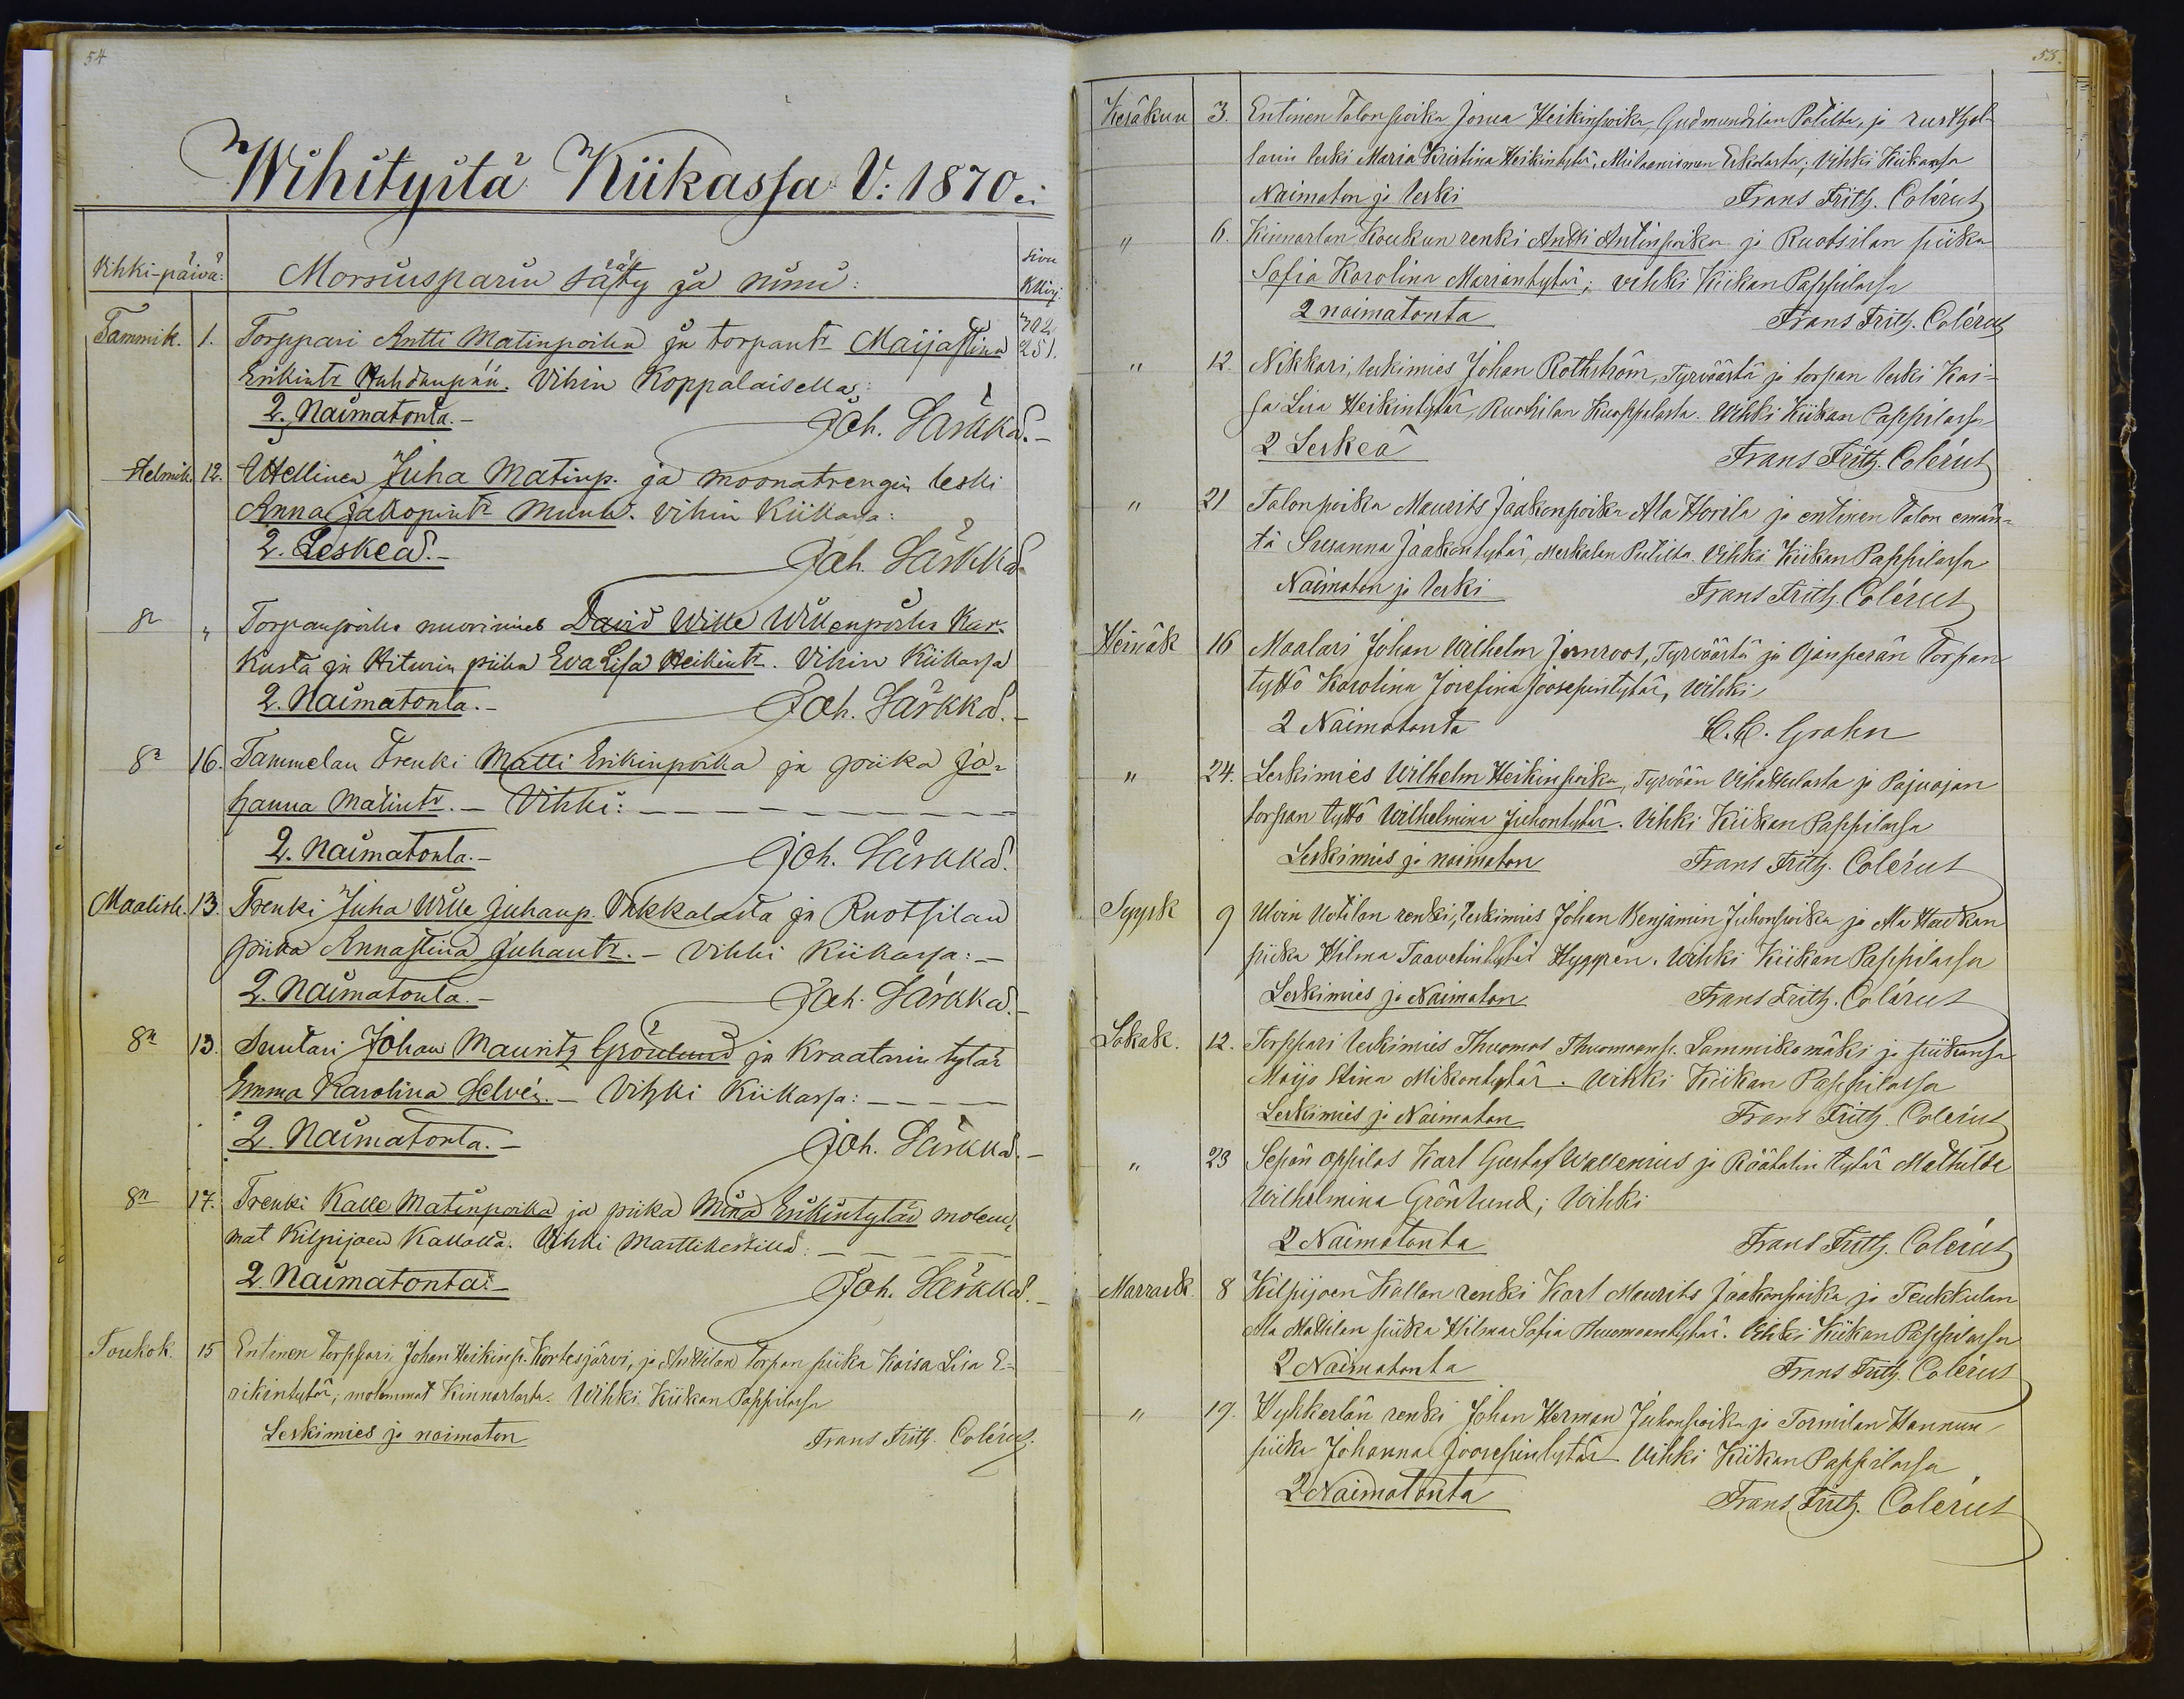 54
Wihityitä Kiikassa V: 1870.
Vihki-päivä: Morsiusparin sääty ja nimi: Sivu K.kirj.
Tammik. 1. Torppari Antti Matinpoika ja torpantr Maijastina 302
Erikintr. Vihin Koppalaisella: 251.
2. Naimatonta.- Joh. Särkkä.-
Helmik. 12. Itsellinen Juha Matinp. ja moonatrengin leski
Anna Jakopintr. Vihin Kiikassa:
2. Leskeä.- Joh. Särkkä
8n „ Torpanpoika nuorimies David Wille Willenpoika Kar-
kusta ja Hiturin piika Eva Lisa Heikintr. Vihin Kiikassa
2. Naimatonta.- Joh. Särkkä.-
8n 16. Tammelan Trenki Matti Erikinpoika ja piika Jo-
hanna Matintr.- Vihki:
2. Naimatonta.- Joh. Särkkä.
Maalisk. 13. Trenki Juha Wille Juhanp. Vakkalasta ja Ruotsilan
piika Annastina Juhantr.- Vihki Kiikassa:-
2. Naimatonta.- Joh. Särkkä.-
8n 13. Suutari Johan Mauritz Grönlund ja Kraatarin tytär
Emma Karolina Selvén.- Vihki Kiikassa:
2. Naimatonta.- Joh. Särkkä.-
8n 17. Trenki Kalle Matinpoika ja piika Miina Erikintytär molem-
mat Kilpijoen Kallolla. Vihki Marttikestillä:
2. Naimatonta.- Joh. Särkkä.-
Toukok. 15 Entinen torppari Johan Heikinp. Kortesjärvi, ja Anttilan torpan piika Kaisa Lisa E-
rikintytär; molemmat Kinnarlasta. Wihki Kiikan Pappilassa
Leskimies ja naimaton Frans Frith. Colérus.
55.
Kesäkuu 3. Entinen Talonpoika Josua Heikinpoika, Gudmundilan Patilta, ja rusthol-
larin leski Maria Kristina Heikintytär, Erkolasta; Vihki Kiikassa
Naimaton ja leski Frans Frith. Colérus
„ 6. Kinnarlan Koukun renki Antti Antinpoika ja Ruotsilan piika
Sofia Karolina Mariantytär; vihki Kiikan Pappilassa
2 naimatonta Frans Frith. Colérus
„ 12. Nikkari, leskimies Johan Rothström, Tyrväästä ja torpan leski Kai-
sa Lisa Heikintytär, Ruotsilan Kuoppalasta. Wihki Kiikan Pappilassa
2 Leskeä Frans Frith. Colérus
„ 21 Talonpoika Maurits Jaakonpoika Ala Horila ja entinen Talon emän-
tä Susanna Jaakontytär, Meskalan Pietilltä. Vihki Kiikan Pappilassa
Naimaton ja leski Frans Frith. Colérus
Heinäk 16 Maalari Johan Wilhelm Jernroos, Tyrväästä ja Ojanperän Torpan
tyttö Karolina Josefina Joosepintytär, Wihki
2 Naimatonta C. C. Grahn
„ 24. Leskimies Wilhelm Heikinpoika, Tyrvään ja Pajuojan
torpan tyttö Wilhelmina Juhontytär. Vihki Kiikan Pappilassa
Leskimies ja naimaton Frans Frith. Colérus
Syysk 9 Ulvin Uotilan renki, leskimies Johan Benjamin Juhonpoika ja Ala Haukan
piika Hilma Taavetintytär Hyppén. Wihki Kiikan Pappilassa
Leskimies ja Naimaton Frans Frith. Colérus
Lokak. 12. Torppari leskimies Thuomas Thuomaanp. Lammikomäki ja piikansa
Maija Stina Mikontytär. Wihki Kiikan Pappilassa
Leskimies ja Naimaton Frans Frith. Colérus
„ 23 Sepän oppilas Karl Gustaf Wallenius ja Räätälin tytär Mathilda
Wilhelmina Grönlund; Wihki
2 Naimatonta Frans Frith. Colérus
Marrask. 8 Kilpijoen Kallan renki Karl Maurits Jaakonpoika ja Teukkulan
Ala Mattilan piika Hilma Sofia Thuomaantytär. Vihki Kiikan Pappilassa
2 Naimatonta Frans Frith. Colérus
„ 19. Hyhkerlän renki Johan Herman Juhonpoika ja Tormilan Hannun
piika Johanna Joosepintytär. Vihki Kiikan Pappilassa
2 Naimatonta Frans Frith. Colérus